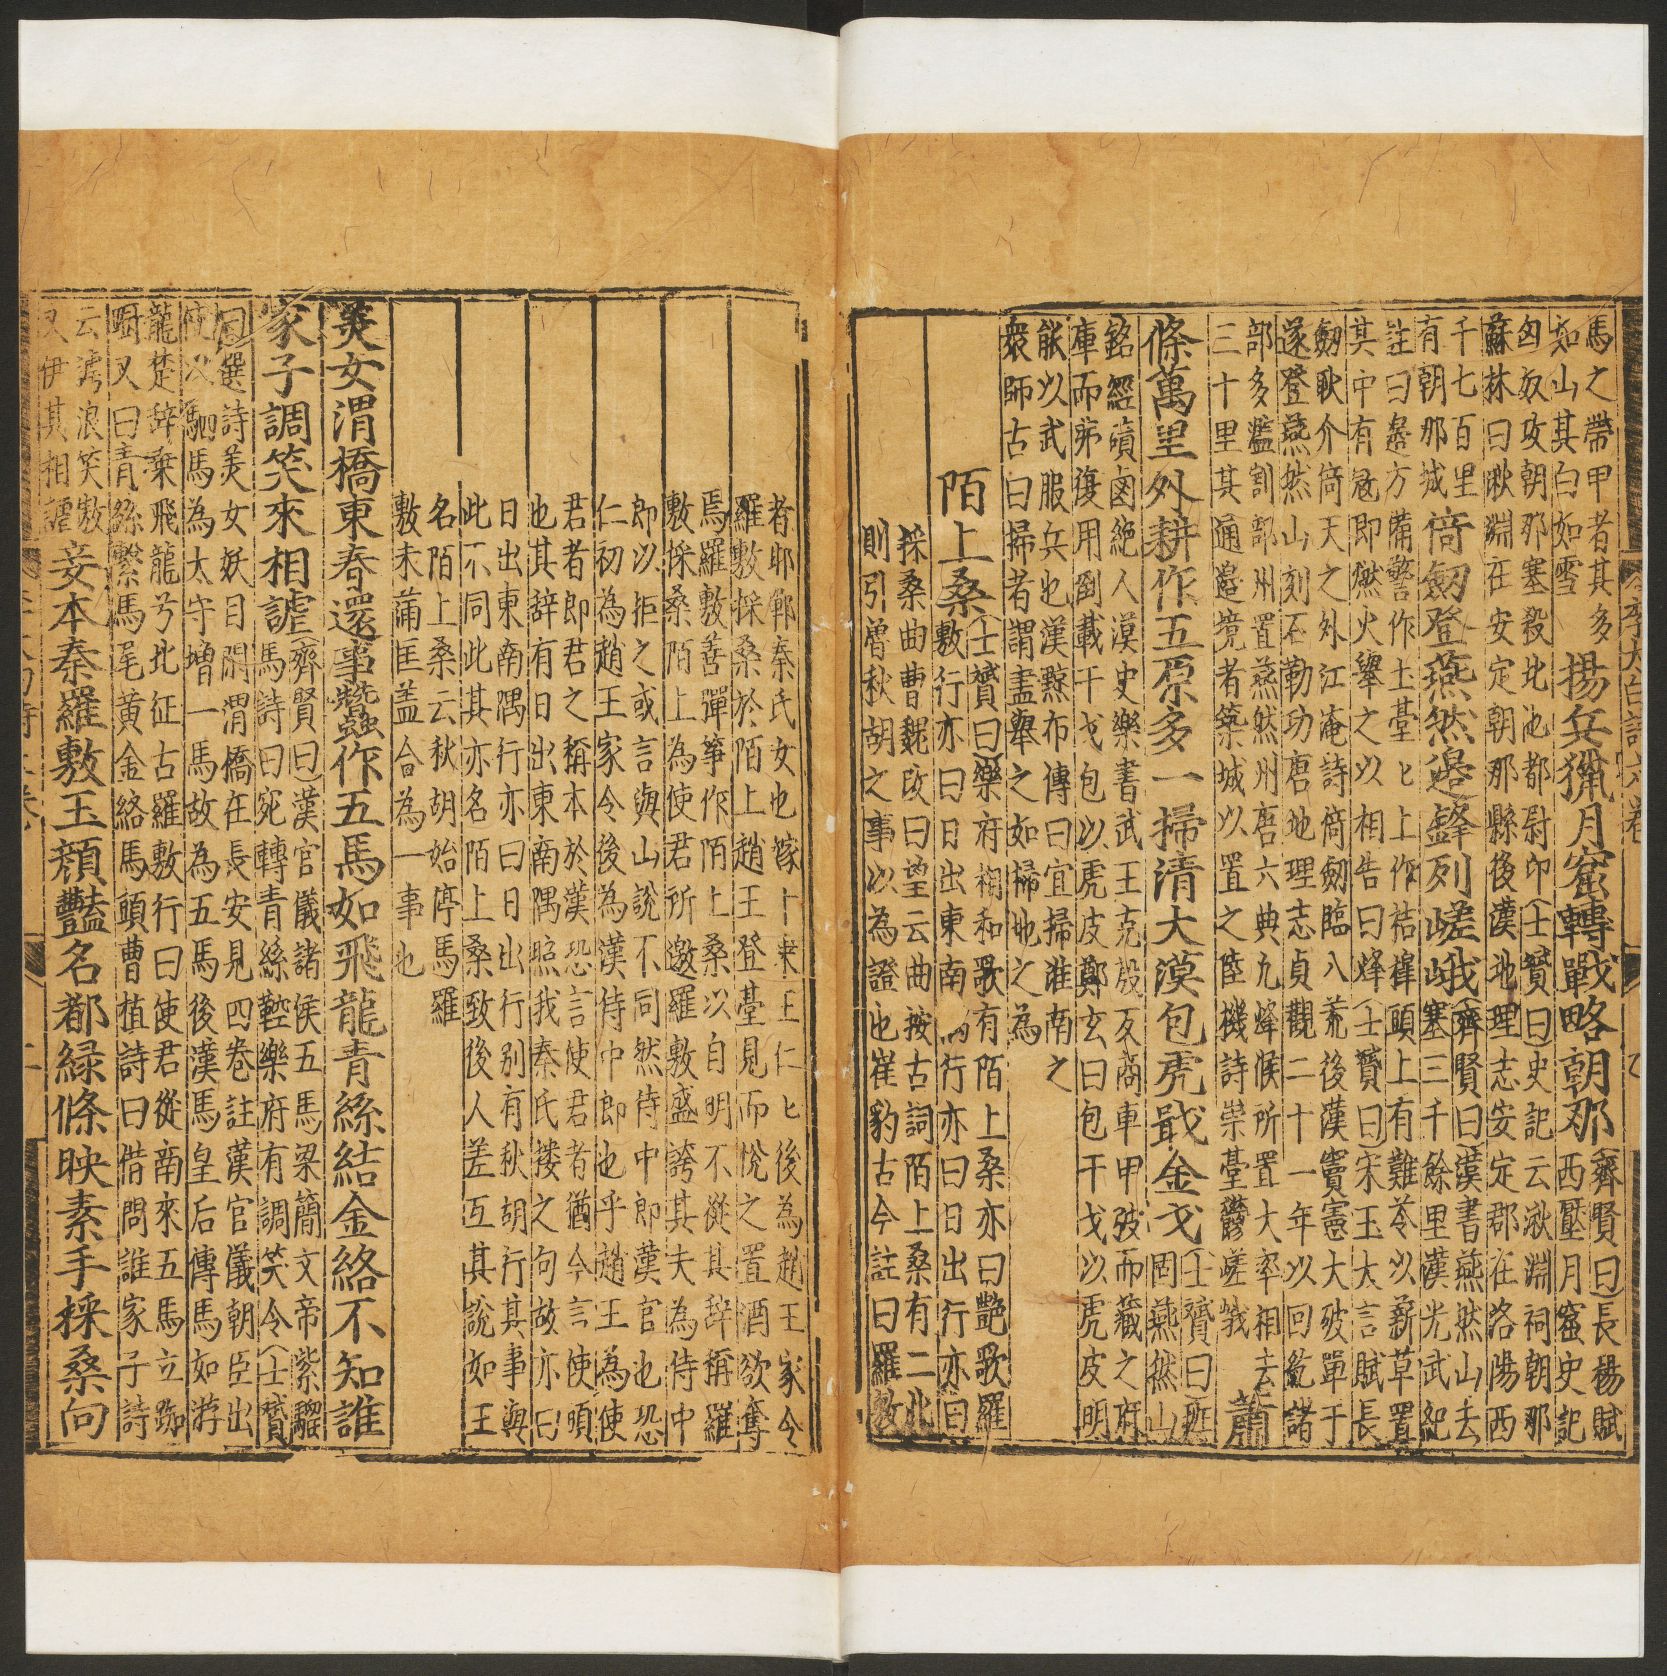 馬之帶甲者其多
知山其白如雪
揚兵獵月窟轉戰略朝那
齊賢曰長楊賦
西壓月窟史記
匈奴攻朝那塞殺北地都尉卬士贇曰史記云湫淵祠朝那
蘇林曰湫淵在安定朝那縣後漢地理志安定郡在洛陽西
千七百里
有朝那城
倚劒登燕然邊鋒列嵯峨
齊賢曰漢書燕然山去
塞三千餘里漢光武紀
註曰邊方備警作土臺匕上作桔槹頭上有難苓以薪草置
其中有冦即燃火舉之以相告曰烽士贇曰宋玉大言賦長
劒耿介倚天之外江淹詩倚劒臨八荒後漢竇憲大破單于
遂登燕然山刻石勒功唐地理志貞觀二十一年以回紇諸
部多濫割部州置燕然州唐六典九烽候所置大率相去
三十里其通邉境者築城以置之陸機詩崇臺鬱嵯峩
蕭
條萬里外耕作五原多一掃清大漠包虎戢金戈
士贇曰班
固燕然山
銘經磧鹵絶人漠史樂書武王克殷反商車甲弢而藏之府
庫而弗復用倒載干戈包以虎皮鄭玄曰包干戈以虎皮明
能以武服兵也漢黥布傳曰宜掃淮南之
衆師古曰掃者謂盡舉之如掃地之為
陌上桑
士贇曰樂府相和歌有陌上桑亦曰艶歌羅
敷行亦曰日出東南隅行亦曰日出行亦曰
採桑曲曹魏改曰望云曲按古詞陌上桑有二此
則引曾秋胡之事以為證也崔豹古今註曰羅敷
者邯鄲秦氏女也嫁千乗王仁匕後為趙王家令
羅敷採桑於陌上趙王登臺見而悅之置酒欲奪
焉羅敷善彈箏作陌上桑以自明不從其辞稱羅
敷採桑陌上為使君所邀羅敷盛誇其夫為侍中
郎以拒之或言與山說不同然侍中郎漢官也恐
仁初為趙王家令後為漢侍中郎也乎趙王為使
君者即君之稱本於漢恐言使君者猶今言使頭
也其辞有日出東南隅照我秦氏樓之句故亦曰
日出東南隅行亦曰日出行别有秋胡行其事與
此不同此其亦名陌上桑致後人差互其說如王
名陌上桑云秋胡始停馬羅
敷未滿匡盖合為一事也
羙女渭橋東春還事蠶作五馬如飛龍青絲結金絡不知誰
家子調笑來相謔
齊賢曰漢官儀諸侯五馬梁簡文帝紫騮
馬詩曰宛轉青絲鞚樂府有調笑令士贇
曰選詩羙女妖且閑渭橋在長安見四巻註漢官儀朝臣出
使以駟馬為太守增一馬故為五馬後漢馬皇后傳馬如游
龍楚辞乗飛龍兮北征古羅敷行曰使君從南來五馬立踟
蹰又曰青絲繫馬尾黄金絡馬頭曹植詩曰借問誰家子詩
云謔浪笑敖
又伊其相謔
妾本秦羅敷玉顔豔名都緑條映素手採桑向